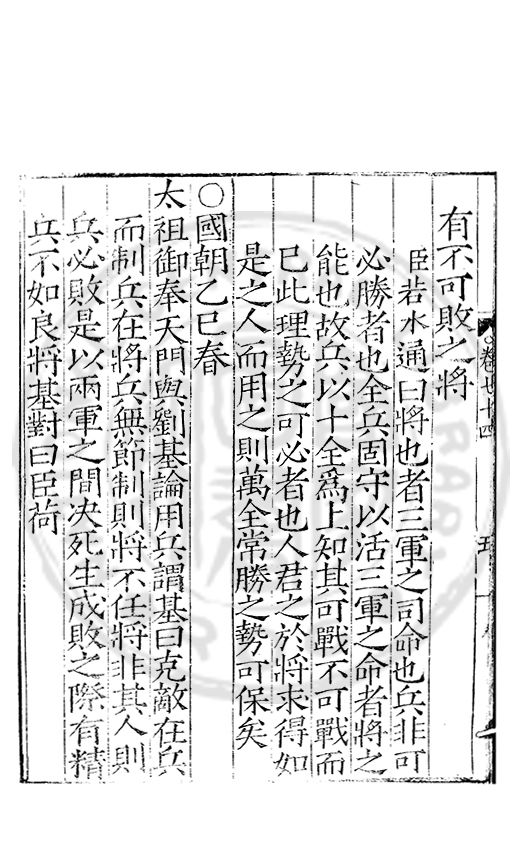 有不可敗之將
臣若水通曰將也者三軍之司命也兵非可
必勝者也全兵固守以活三軍之命者將之
能也故兵以十全爲上知其可戰不可戰而
已此理勢之可必者也人君之於將求得如
是之人而用之則萬全常勝之勢可保矣
○國朝乙巳春
太祖御奉天門與劉基論用兵謂基曰克敵在兵
而制兵在將兵無節制則將不任將非其人則
兵必敗是以兩軍之間决死生成敗之際有精
兵不如良將基對曰臣荷
卷七十四